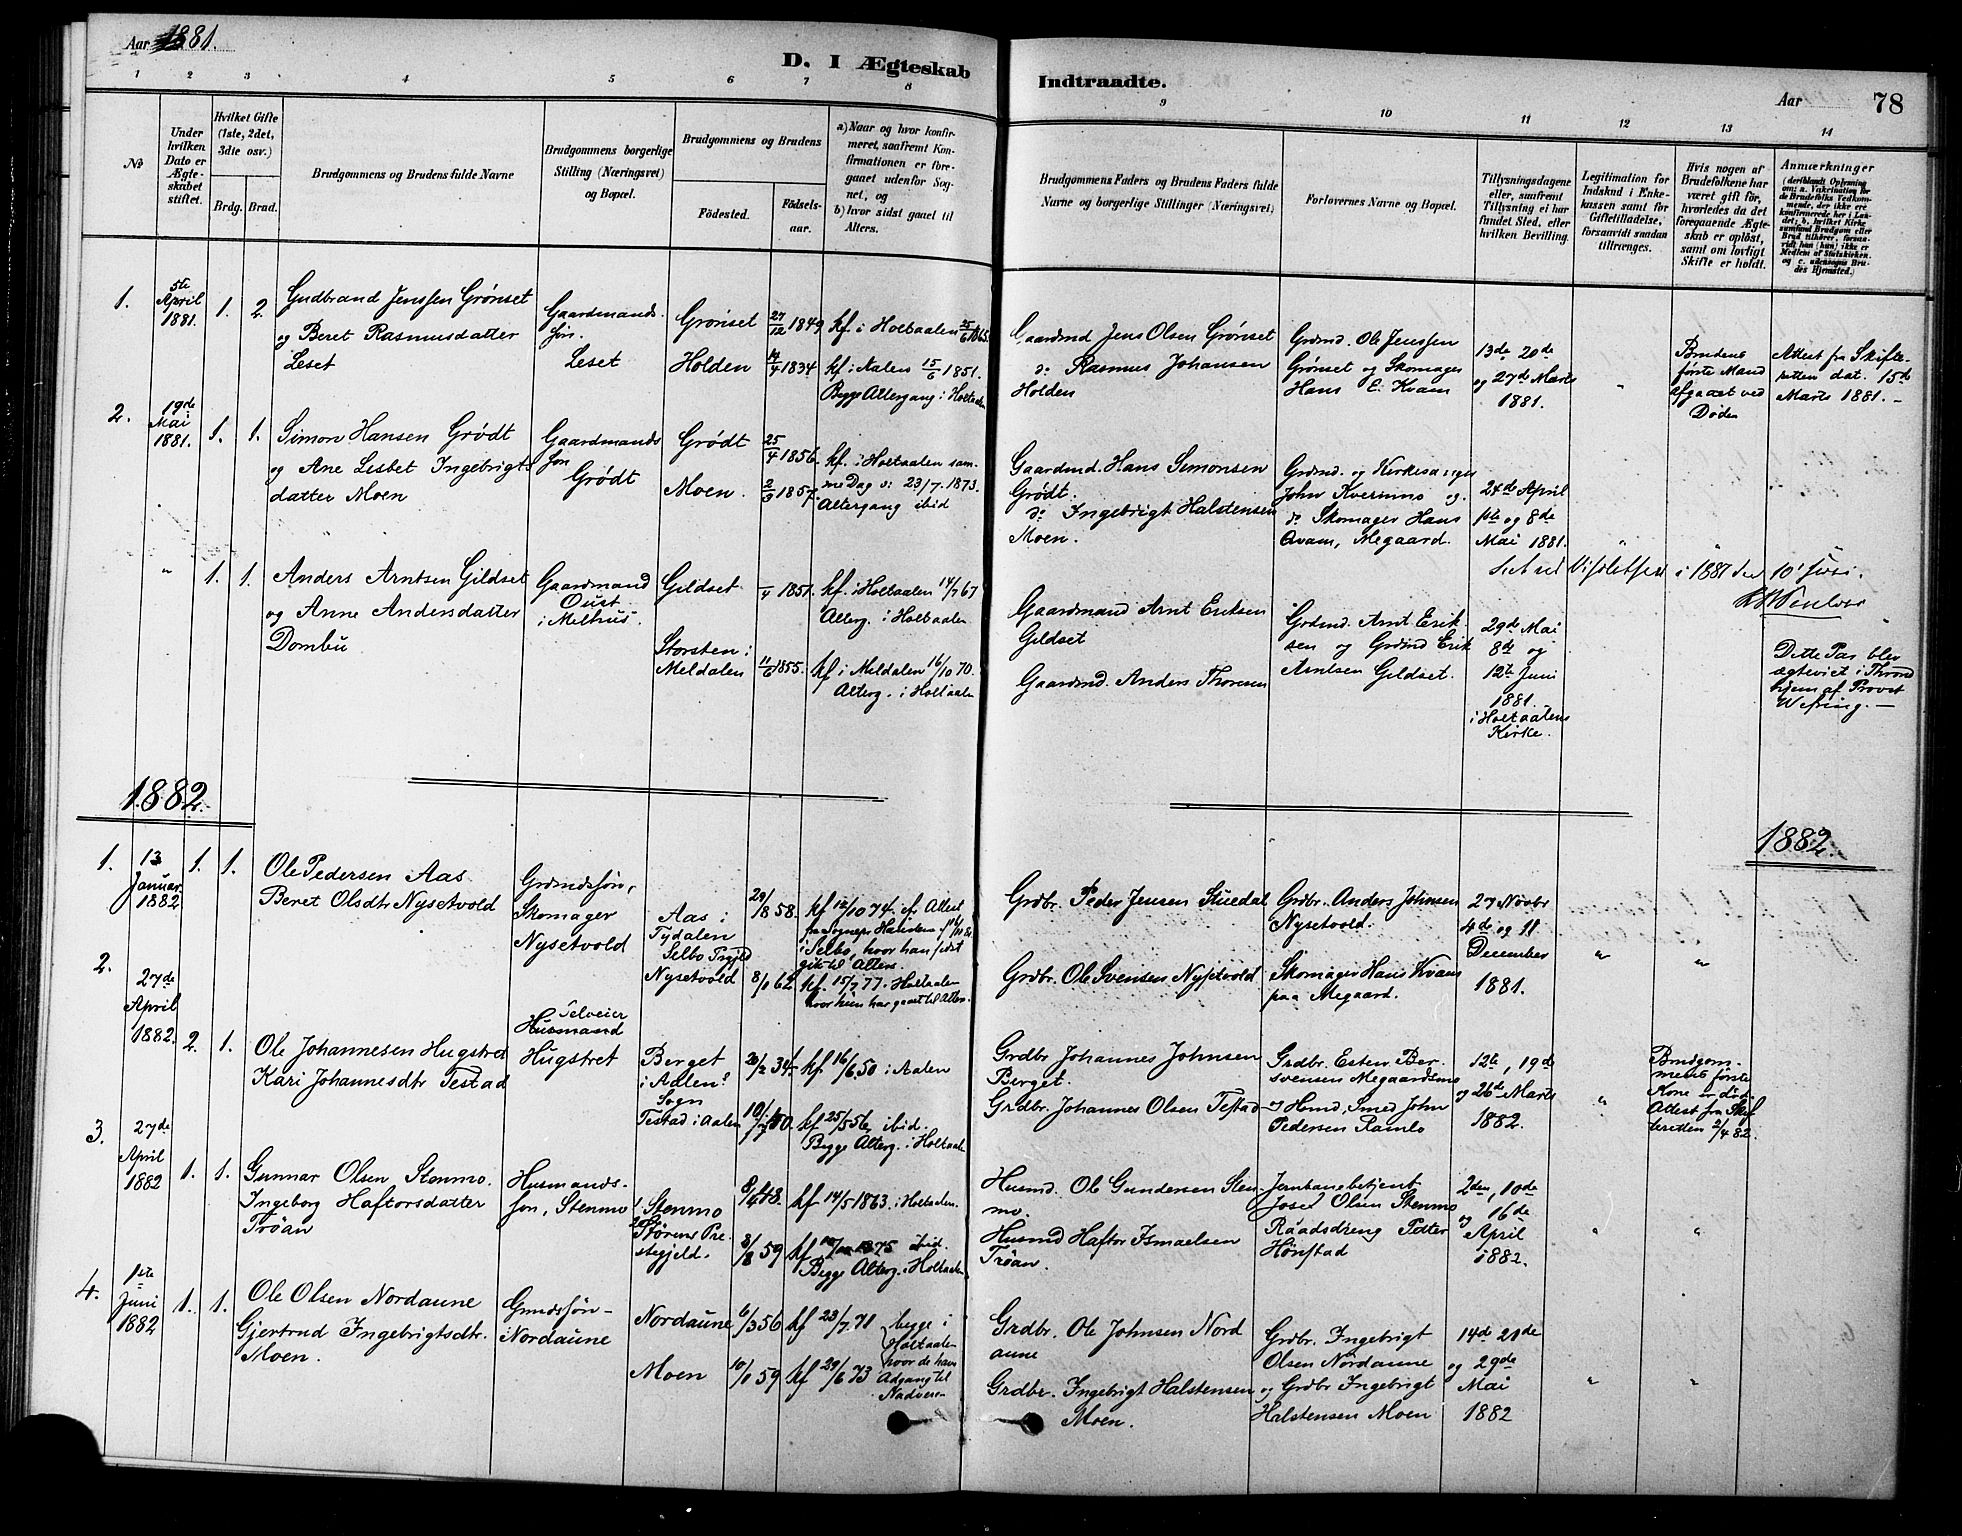 Aar 1881.
D. I Ægteskab Indtraadte.
Aar
78
1 2 3 4 5 6 7 8 9 10 11 12 13 14
No
Under hvilken Dato er Ægteskabet stiftet.
Hvilket Gifte (1ste, 2det, 3die osv.)
Brdg. Brud.
Brudgommens og Brudens fulde Navne
Brudgommens borgerlige Stilling (Næringsvei) og Bopæl.
Brudgommens og Brudens
Fødested.
Fødselsaar.
a) Naar og hvor konfirmeret, saafremt Konfirmationen er foregaaet udenfor Sognet, og
b) hvor sidst gaaet til Alters.
Brudgommens Faders og Brudens Faders fulde Navne og borgerlige Stillinger (Næringsvei)
Forlovernes Navne og Bopæl.
Tillysningsdagene eller, saafremt Tillysning ei har fundet Sted, efter hvilken Bevilling.
Legitimation for Indskud i Enkekassen samt for Giftetilladelse, forsaavidt saadan tiltrænges.
Hvis nogen af Brudefolkene har været gift før, hvorledes da det foregaaende Ægteskab er opløst, samt om lovligt Skifte er holdt.
Anmærkninger
1. 5te April 1881. 1. 2.
Gudbrand Jenssen Grønset
og Beret Rasmusdatter
Leset
Gaardmands
søn.
Leset
Grønset 27/12 1849 kf. i Holtaalen
Holden 1834 kf. i Aalen 15/6 1851.
Begge Altergang i Holtaalen
Gaardmd Jens Olsen Grønset
do Rasmus Johansen
Holden
Grdmd. Ole Jenssen
Grønset og Skomager
Hans E. Kvam
13de 20de
og 27de Marts
1881.
Brudens
første Mand
afgaaet ved
Døden
Attest fra Skifte-
retten dat. 15de
Marts 1881. -
2. 19de Mai 1881. 1. 1.
Simon Hansen Grødt
og Ane Lisbet Ingebrigts
datter Moen
Gaardmands
søn
Grødt
Grødt 25/4 1856. kf. i Holtaalen sam-
Moen. 1857. me Dag d: 23/7. 1873.
Altergang ibid
Gaardmd. Hans Simonsen
Grødt.
do Ingebrigt Halstensen
Moen.
Grdmd. og Kirkesanger
John Kverinmo og
do Skomager Hans
Qvam, Megaard.
24de April
1ste og 8de
Mai 1881.
i 1887 den 10'
" 1. 1.
Anders Arntsen Gildset
og Anne Andersdatter
Dombu
Gaardmand
Oust
i Melhus.
Gildset. 1851. kf. i Holtaalen 14/7 67
Alterg. i Holtaalen
Storsten i
Meldalen 11/6 1855. kf i Meldalen 16/10 70.
Alterg. i Holtaalen
Gaardmand Arnt Eriksen
Gildset
Gaardmd. Anders Thoresen
Grdmd. Arnt Erik
sen og Grdmd Erik
Arntsen Gildset.
29de Mai
8de og
12te Juni
1881.
i Holtaalens
Kirke.
Dette Par blev
ægteviet i Thrond
hjem af Provst
Wefring. -
1882.
1882.
1. 13 Januar 1882 1. 1.
Ole Pedersen Aas.
Beret Olsdtr Nysetvold
Grdmdssøn,
Skomager
Nysetvold
Aas i
Tydalen
Selbo Prgjld
Nysetvold
29/8 58. kf 12/10 74. efr Attest
i Selbo, hvor han sidst
gik til Alters.
8/1 62. kf. 15/7 77. Holtaalen
hvor hun har gaaet til Alters.
Grdbr. Peder Jensen Stuedal
Grdbr. Ole Svensen Nysetvold
Grdbr. Anders Johnsen
Nysetvold.
Skomager Hans Kvam
paa Megaard.
27 Novbr
4de og 11
December
1881.
2. 27de April 1882. 2. 1.
Ole Johannesen Hugstret
Kari Johannesdtr Testad
Selveier
Husmand
Hugstret
Berget
i Aalens
Sogn
Testad i Aalen
20/2 34. kf 16/6 50 i Aalen
kf 25/5 56, ibid.
Begge Alterg. i Holtaalen
Grdbr Johannes Johnsen
Berget.
Grdbr. Johannes Olsen Testad
Grdbr. Esten Ber-
svensen Megaardsmo
og Hmd, Smed John
Pedersen Ramlo
12te, 19de
og 26de Marts
1882.
Brudgom-
mens første
Kone er død.
Attest fra Skif
teretten 2/4 82.
3. 27de April 1882 1. 1.
Gunnar Olsen Stenmo.
Ingeborg Haftorsdatter
Trøan
Husmands-
søn, Stenmo
Stenmo
Størens Pre
stegjeld.
48. kf 14/5 1863. i Holtaalen.
8/8 59 kf 1875 ibid.
Begge Alterg. i Holtaalen
Husmd. Ole Gundersen Sten-
mo.
Husmd Haftor Ismaelsen
Trøan.
Jernbanebetjent
Josef Olsen Stenmo
Raadsdreng Petter
Hønstad
2den, 10de
og 16de
April
1882.
4. 1ste Juni 1882 1. 1.
Ole Olsen Nordaune
Gjertrud Ingebrigtsdtr.
Moen.
Grmdssøn -
Nordaune
Nordaune 6/3 56 kf 23/7. 71
Moen 10/1 59 kf 29/6 73
begge i
Holtaalen
hvor de have
Adgang til
Nadveren
Grdbr. Ole Johnsen Nord
aune
Grdbr. Ingebrigt Halstensen
Moen.
Grdbr. Ingebrigt
Olsen Nordaune
og Grdbr Ingebrigt
Halstensen Moen
14de 21de
og 29de
Mai
1882